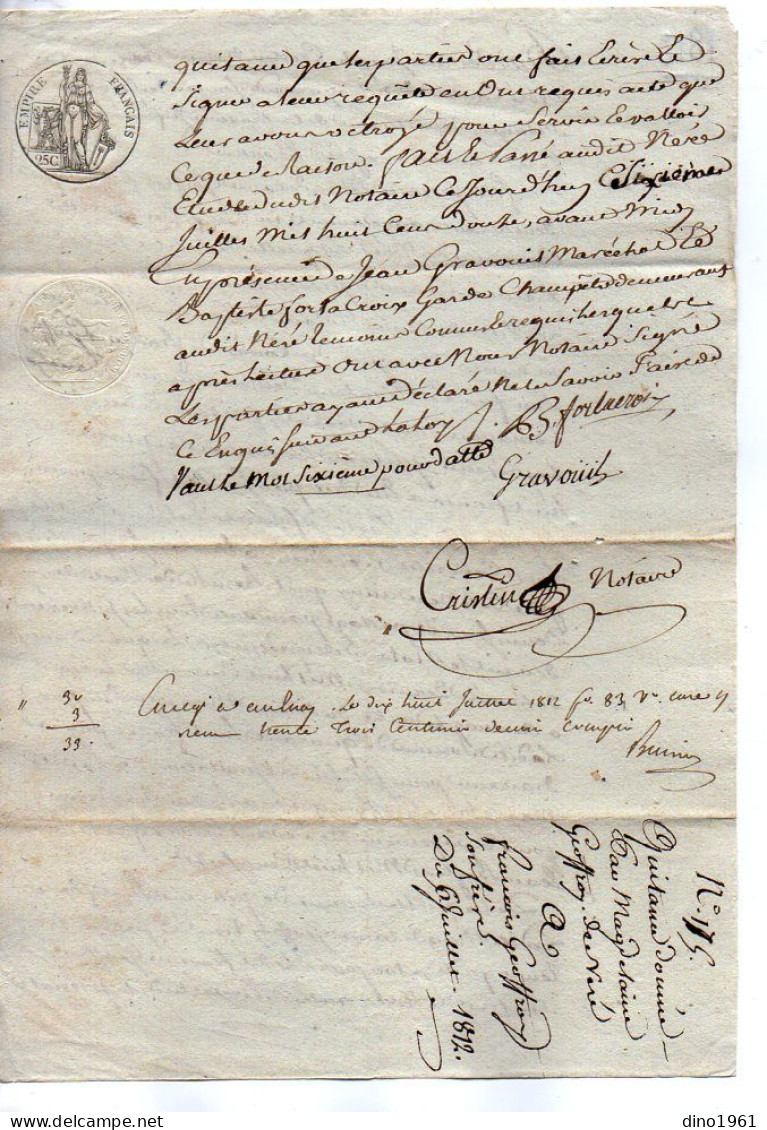 EMPIRE FRANÇAIS
25C
quitance que les parties ont fait Ecrire Le
Signer a leur requête en Ont requis acte que
Leur avons octroyé pour Servir Et valloir
Ce que de Raison. fait Et Passé audit Néré
Etude dudit Notaire Ce Jourd'huy Sixième
Juillet Mil huit Cent Douze, avant Midy
En présence de Jean Gravouil Maréchal Et
Baptiste fortacroix Garde Champêtre demeurant
audit Néré temoins Connus Et requis Lesquels
après Lecture Ont avec Nous Notaire Signé
Les parties ayant déclaré Ne le Savoir Faire de
Ce Enquis Suivant La Loy
Vaut Le Mot Sixième pour datte
Gravouil
Cristin Notaire
30
3
33.
Le dix huit Juillet 1812 fo. 83 Vo.
trente Trois Centimes decime compris
No. 115.
Quitance donnée
Par Magdelaine
Geoffroy de Néré
A
francois Geoffroy
Son frère.
Du 6 Juillet 1812.
dino1961